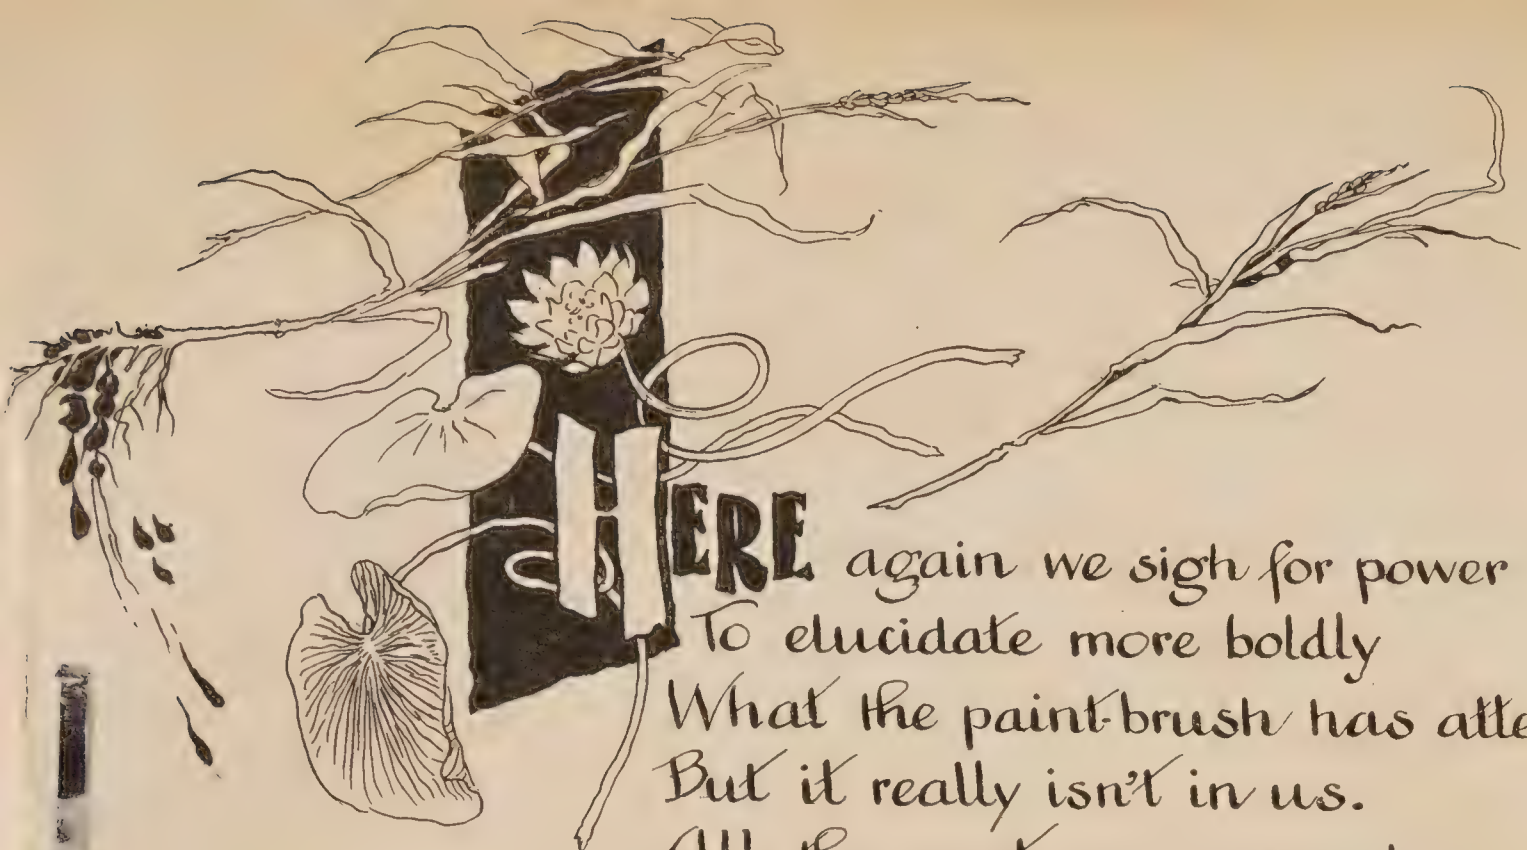 HERE again we sigh for power
To elucidate more boldly
What the paint-brush has
But it really isn't in us.